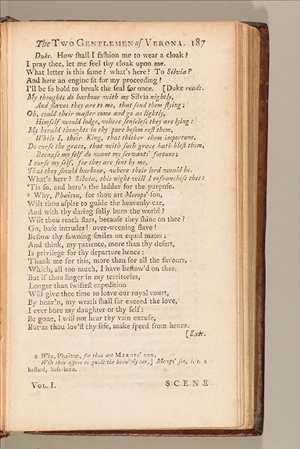 The TWO GENTLEMEN of VERONA. 187
Duke. How shall I fashion me to wear a cloak?
I pray thee, let me feel thy cloak upon me.
What letter is this same? what's here? To Silvia?
And here an engine fit for my proceeding?
I'll be so bold to break the seal for once. [Duke reads.
My thoughts do harbour with my Silvia nightly,
And slaves they are to me, that send them flying:
Oh, could their master come and go as lightly,
Himself would lodge, where senseless they are lying:
My herald thoughts in thy pure bosom rest them,
While I, their King, that thither them importune,
Do curse the grace, that with such grace hath blest them,
Because my self do want my servants' fortune:
I curse my self, for they are sent by me,
That they should harbour, where their lord would be.
What's here? Silvia, this night will I enfranchise thee!
'Tis so, and here's the ladder for the purpose.
2 Why, Phaëton, for thou art Merops' son,
Wilt thou aspire to guide the heavenly car,
And with thy daring folly burn the world?
Wilt thou reach stars, because they shine on thee?
Go, base intruder! over-weening slave!
Bestow thy fawning smiles on equal mates;
And think, my patience, more than thy desert,
Is privilege for thy departure hence:
Thank me for this, more than for all the favours,
Which, all too much, I have bestow'd on thee.
But if thou linger in my territories,
Longer than swiftest expedition
Will give thee time to leave our royal court,
By heav'n, my wrath shall far exceed the love,
I ever bore my daughter or thy self:
Be gone, I will not hear thy vain excuse,
But as thou lov'st thy life, make speed from hence.
[Exit.
2 Why, Phaëton, for thou art MEROPS' son,
Wilt thou aspire to guide the heav'nly car,] Merops' son, i. e. a
bastard, base-born.
VOL. I. SCENE